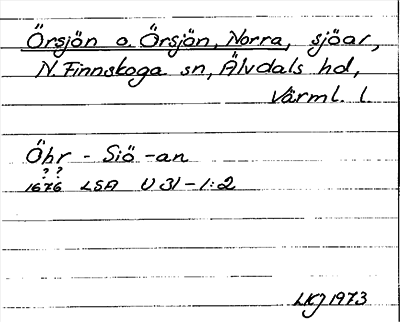 Örsjön o. Örsjön, Norra, sjöar,
N. Finnskoga sn, Älvdals hd,
Värml. l.
Öhr - Siö -an
? ?
1676 LSA U 31-1:2
LKJ 1973